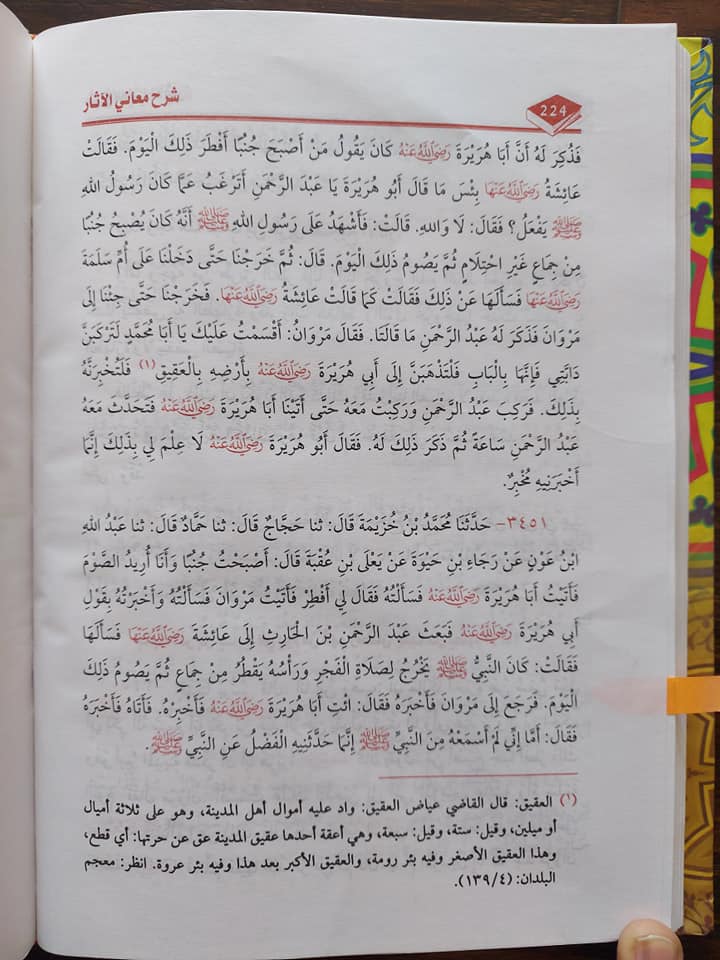 224
شرح معاني الآثار
فَذُكِرَ لَهُ أَنَّ أَبَا هُرَيْرَةَ رَضِيَ اللهُ عَنْهُ كَانَ يَقُولُ مَنْ أَصْبَحَ جُنُبًا أَفْطَرَ ذَلِكَ الْيَوْمَ. فَقَالَتْ
عَائِشَةُ رَضِيَ اللهُ عَنْهَا بِئْسَ مَا قَالَ أَبُو هُرَيْرَةَ يَا عَبْدَ الرَّحْمَنِ أَتَرْغَبُ عَمَّا كَانَ رَسُولُ اللهِ
ﷺ يَفْعَلُ؟ فَقَالَ: لَا وَاللهِ. قَالَتْ: فَأَشْهَدُ عَلَى رَسُولِ اللهِ ﷺ أَنَّهُ كَانَ يُصْبِحُ جُنُبًا
مِنْ جِمَاعٍ غَيْرِ احْتِلَامٍ ثُمَّ يَصُومُ ذَلِكَ الْيَوْمَ. قَالَ: ثُمَّ خَرَجْنَا حَتَّى دَخَلْنَا عَلَى أُمِّ سَلَمَةَ
رَضِيَ اللهُ عَنْهَا فَسَأَلَهَا عَنْ ذَلِكَ فَقَالَتْ كَمَا قَالَتْ عَائِشَةُ رَضِيَ اللهُ عَنْهَا. فَخَرَجْنَا حَتَّى جِئْنَا إِلَى
مَرْوَانَ فَذَكَرَ لَهُ عَبْدُ الرَّحْمَنِ مَا قَالَتَا. فَقَالَ مَرْوَانُ: أَقْسَمْتُ عَلَيْكَ يَا أَبَا مُحَمَّدٍ لَتَرْكَبَنَّ
دَابَّتِي فَإِنَّهَا بِالْبَابِ فَلْتَذْهَبَنَّ إِلَى أَبِي هُرَيْرَةَ رَضِيَ اللهُ عَنْهُ بِأَرْضِهِ بِالْعَقِيقِ(١) فَلَتُخْبِرَنَّهُ
بِذَلِكَ. فَرَكِبَ عَبْدُ الرَّحْمَنِ وَرَكِبْتُ مَعَهُ حَتَّى أَتَيْنَا أَبَا هُرَيْرَةَ رَضِيَ اللهُ عَنْهُ فَتَحَدَّثَ مَعَهُ
عَبْدُ الرَّحْمَنِ سَاعَةً ثُمَّ ذَكَرَ ذَلِكَ لَهُ. فَقَالَ أَبُو هُرَيْرَةَ رَضِيَ اللهُ عَنْهُ لَا عِلْمَ لِي بِذَلِكَ إِنَّمَا
أَخْبَرَنِيهِ مُخْبِرٌ.
٣٤٥١- حَدَّثَنَا مُحَمَّدُ بْنُ خُزَيْمَةَ قَالَ: ثنا حَجَّاجٌ قَالَ: ثنا حَمَّادٌ قَالَ: ثنا عَبْدُ اللهِ
ابْنُ عَوْنٍ عَنْ رَجَاءِ بْنِ حَيْوَةَ عَنْ يَعْلَى بْنِ عُقْبَةَ قَالَ: أَصْبَحْتُ جُنُبًا وَأَنَا أُرِيدُ الصَّوْمَ
فَأَتَيْتُ أَبَا هُرَيْرَةَ رَضِيَ اللهُ عَنْهُ فَسَأَلْتُهُ فَقَالَ لِي أَفْطِرْ فَأَتَيْتُ مَرْوَانَ فَسَأَلْتُهُ وَأَخْبَرْتُهُ بِقَوْلِ
أَبِي هُرَيْرَةَ رَضِيَ اللهُ عَنْهُ فَبَعَثَ عَبْدَ الرَّحْمَنِ بْنَ الْحَارِثِ إِلَى عَائِشَةَ رَضِيَ اللهُ عَنْهَا فَسَأَلَهَا
فَقَالَتْ: كَانَ النَّبِيُّ ﷺ يَخْرُجُ لِصَلَاةِ الْفَجْرِ وَرَأْسُهُ يَقْطُرُ مِنْ جِمَاعٍ ثُمَّ يَصُومُ ذَلِكَ
الْيَوْمَ. فَرَجَعَ إِلَى مَرْوَانَ فَأَخْبَرَهُ فَقَالَ: ائْتِ أَبَا هُرَيْرَةَ رَضِيَ اللهُ عَنْهُ فَأَخْبِرْهُ. فَأَتَاهُ فَأَخْبَرَهُ
فَقَالَ: أَمَّا إِنِّي لَمْ أَسْمَعْهُ مِنَ النَّبِيِّ ﷺ إِنَّمَا حَدَّثَنِيهِ الْفَضْلُ عَنِ النَّبِيِّ ﷺ.
(١) العقيق: قال القاضي عياض العقيق: واد عليه أموال أهل المدينة، وهو على ثلاثة أميال
أو ميلين، وقيل: ستة، وقيل: سبعة، وهي أعقة أحدها عقيق المدينة عق عن حرتها: أي قطع،
وهذا العقيق الأصغر وفيه بئر رومة، والعقيق الأكبر بعد هذا وفيه بئر عروة. انظر: معجم
البلدان: (١٣٩/٤).